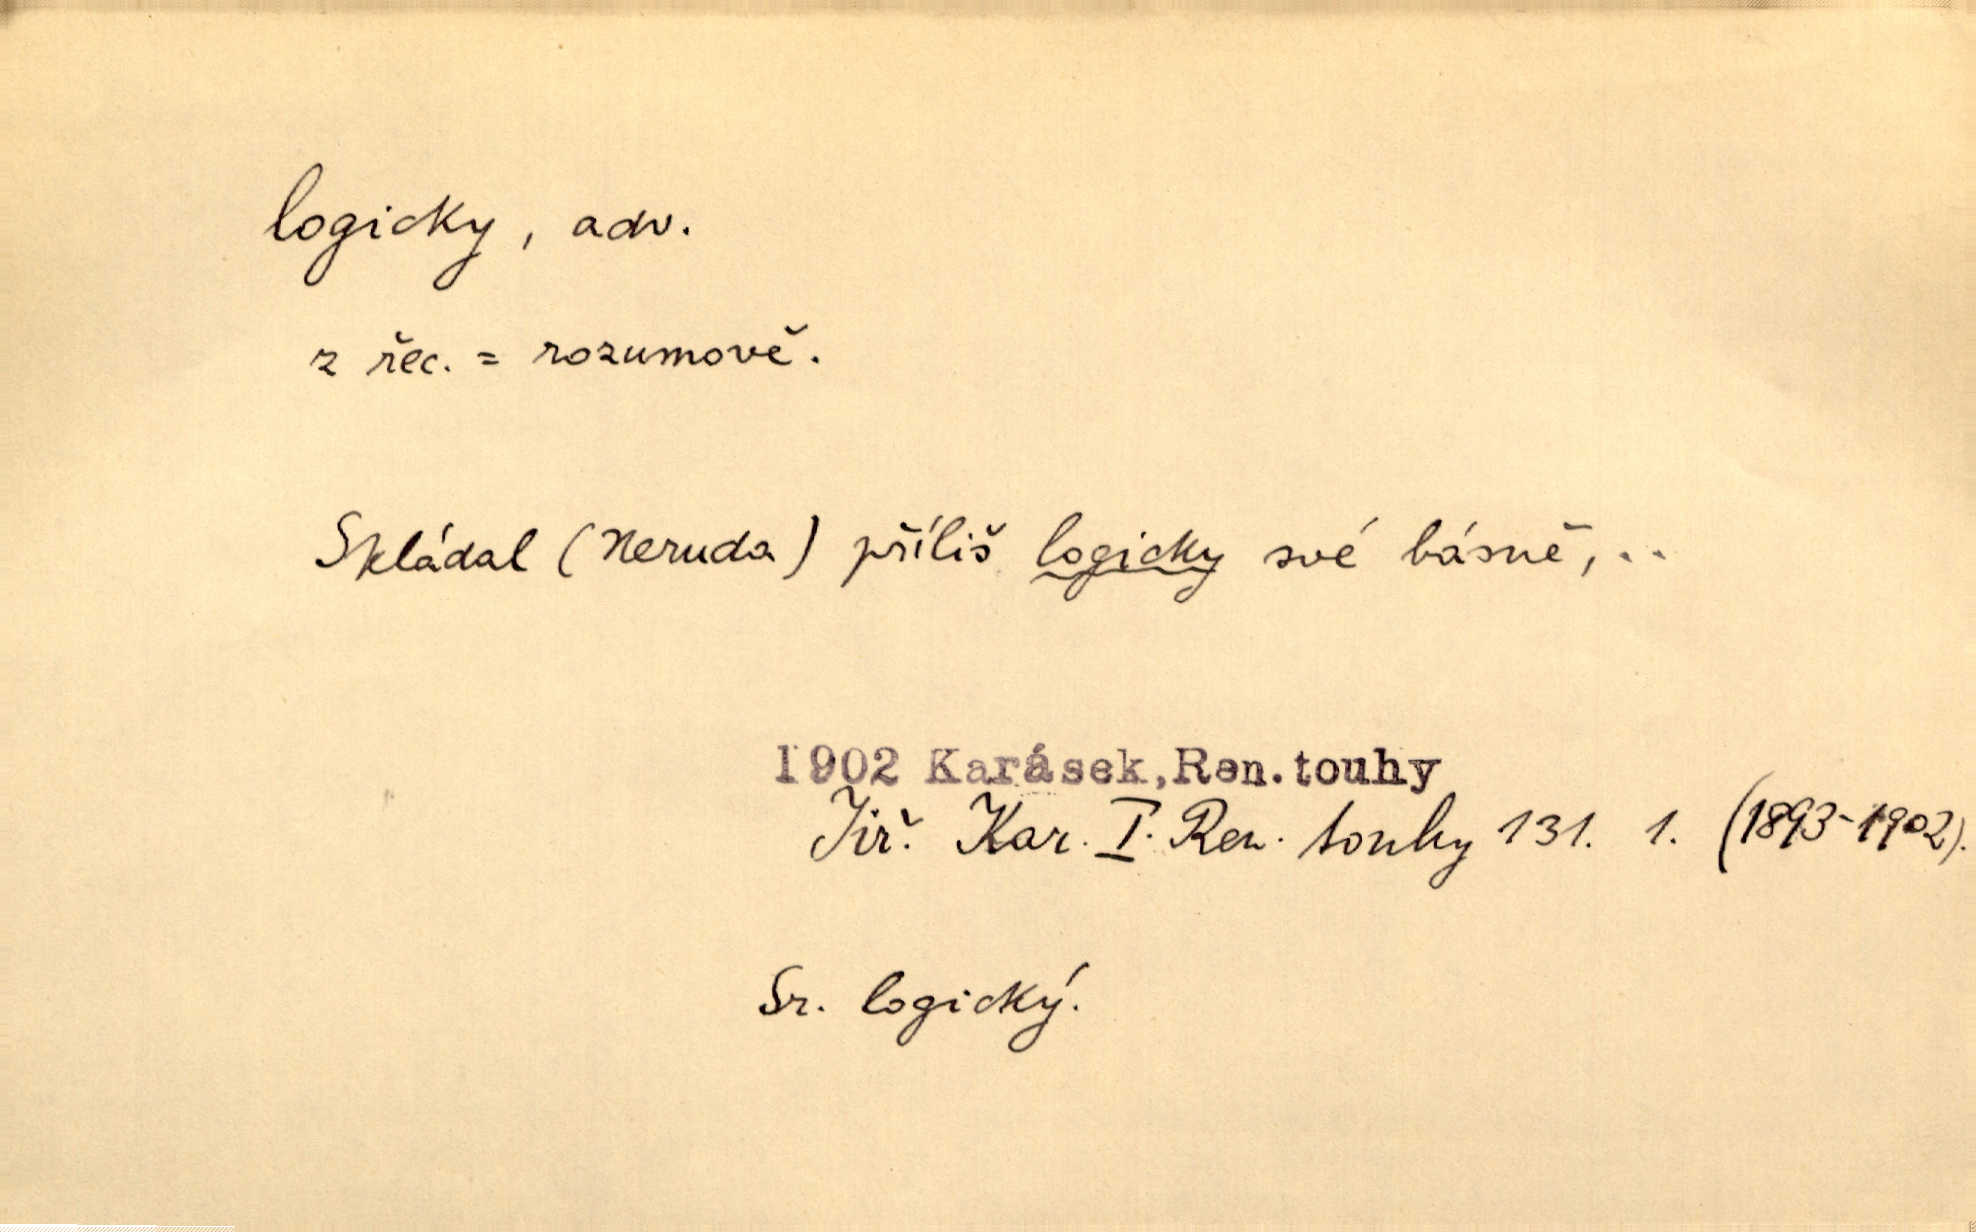 logicky, adv.
z řec. = rozumově.
Skládal (Neruda) příliš logicky své básně, ..
1902 Karásek, Ren. touhy
Jiř. Kar. I. Ren. touhy 131. 1. (1893-1902).
Sr. logický.